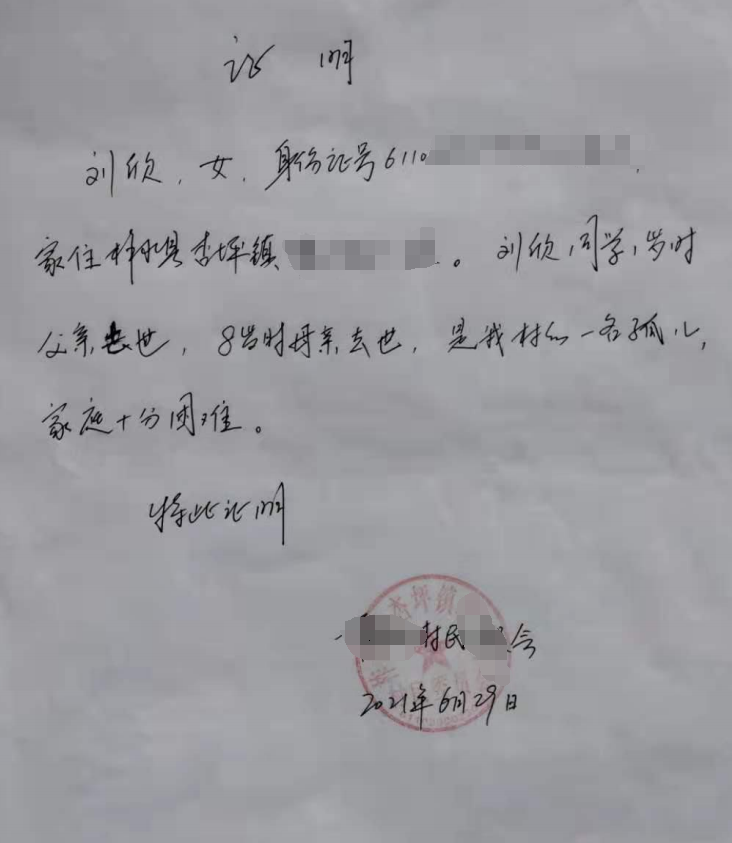 证 明
刘欣，女，身份证号6110
家住柞水县杏坪镇 。刘欣同学1岁时
父亲去世，8岁时母亲去世，是我村的一名孤儿，
家庭十分困难。
特此证明
杏坪镇
村民 会
2021年6月29日